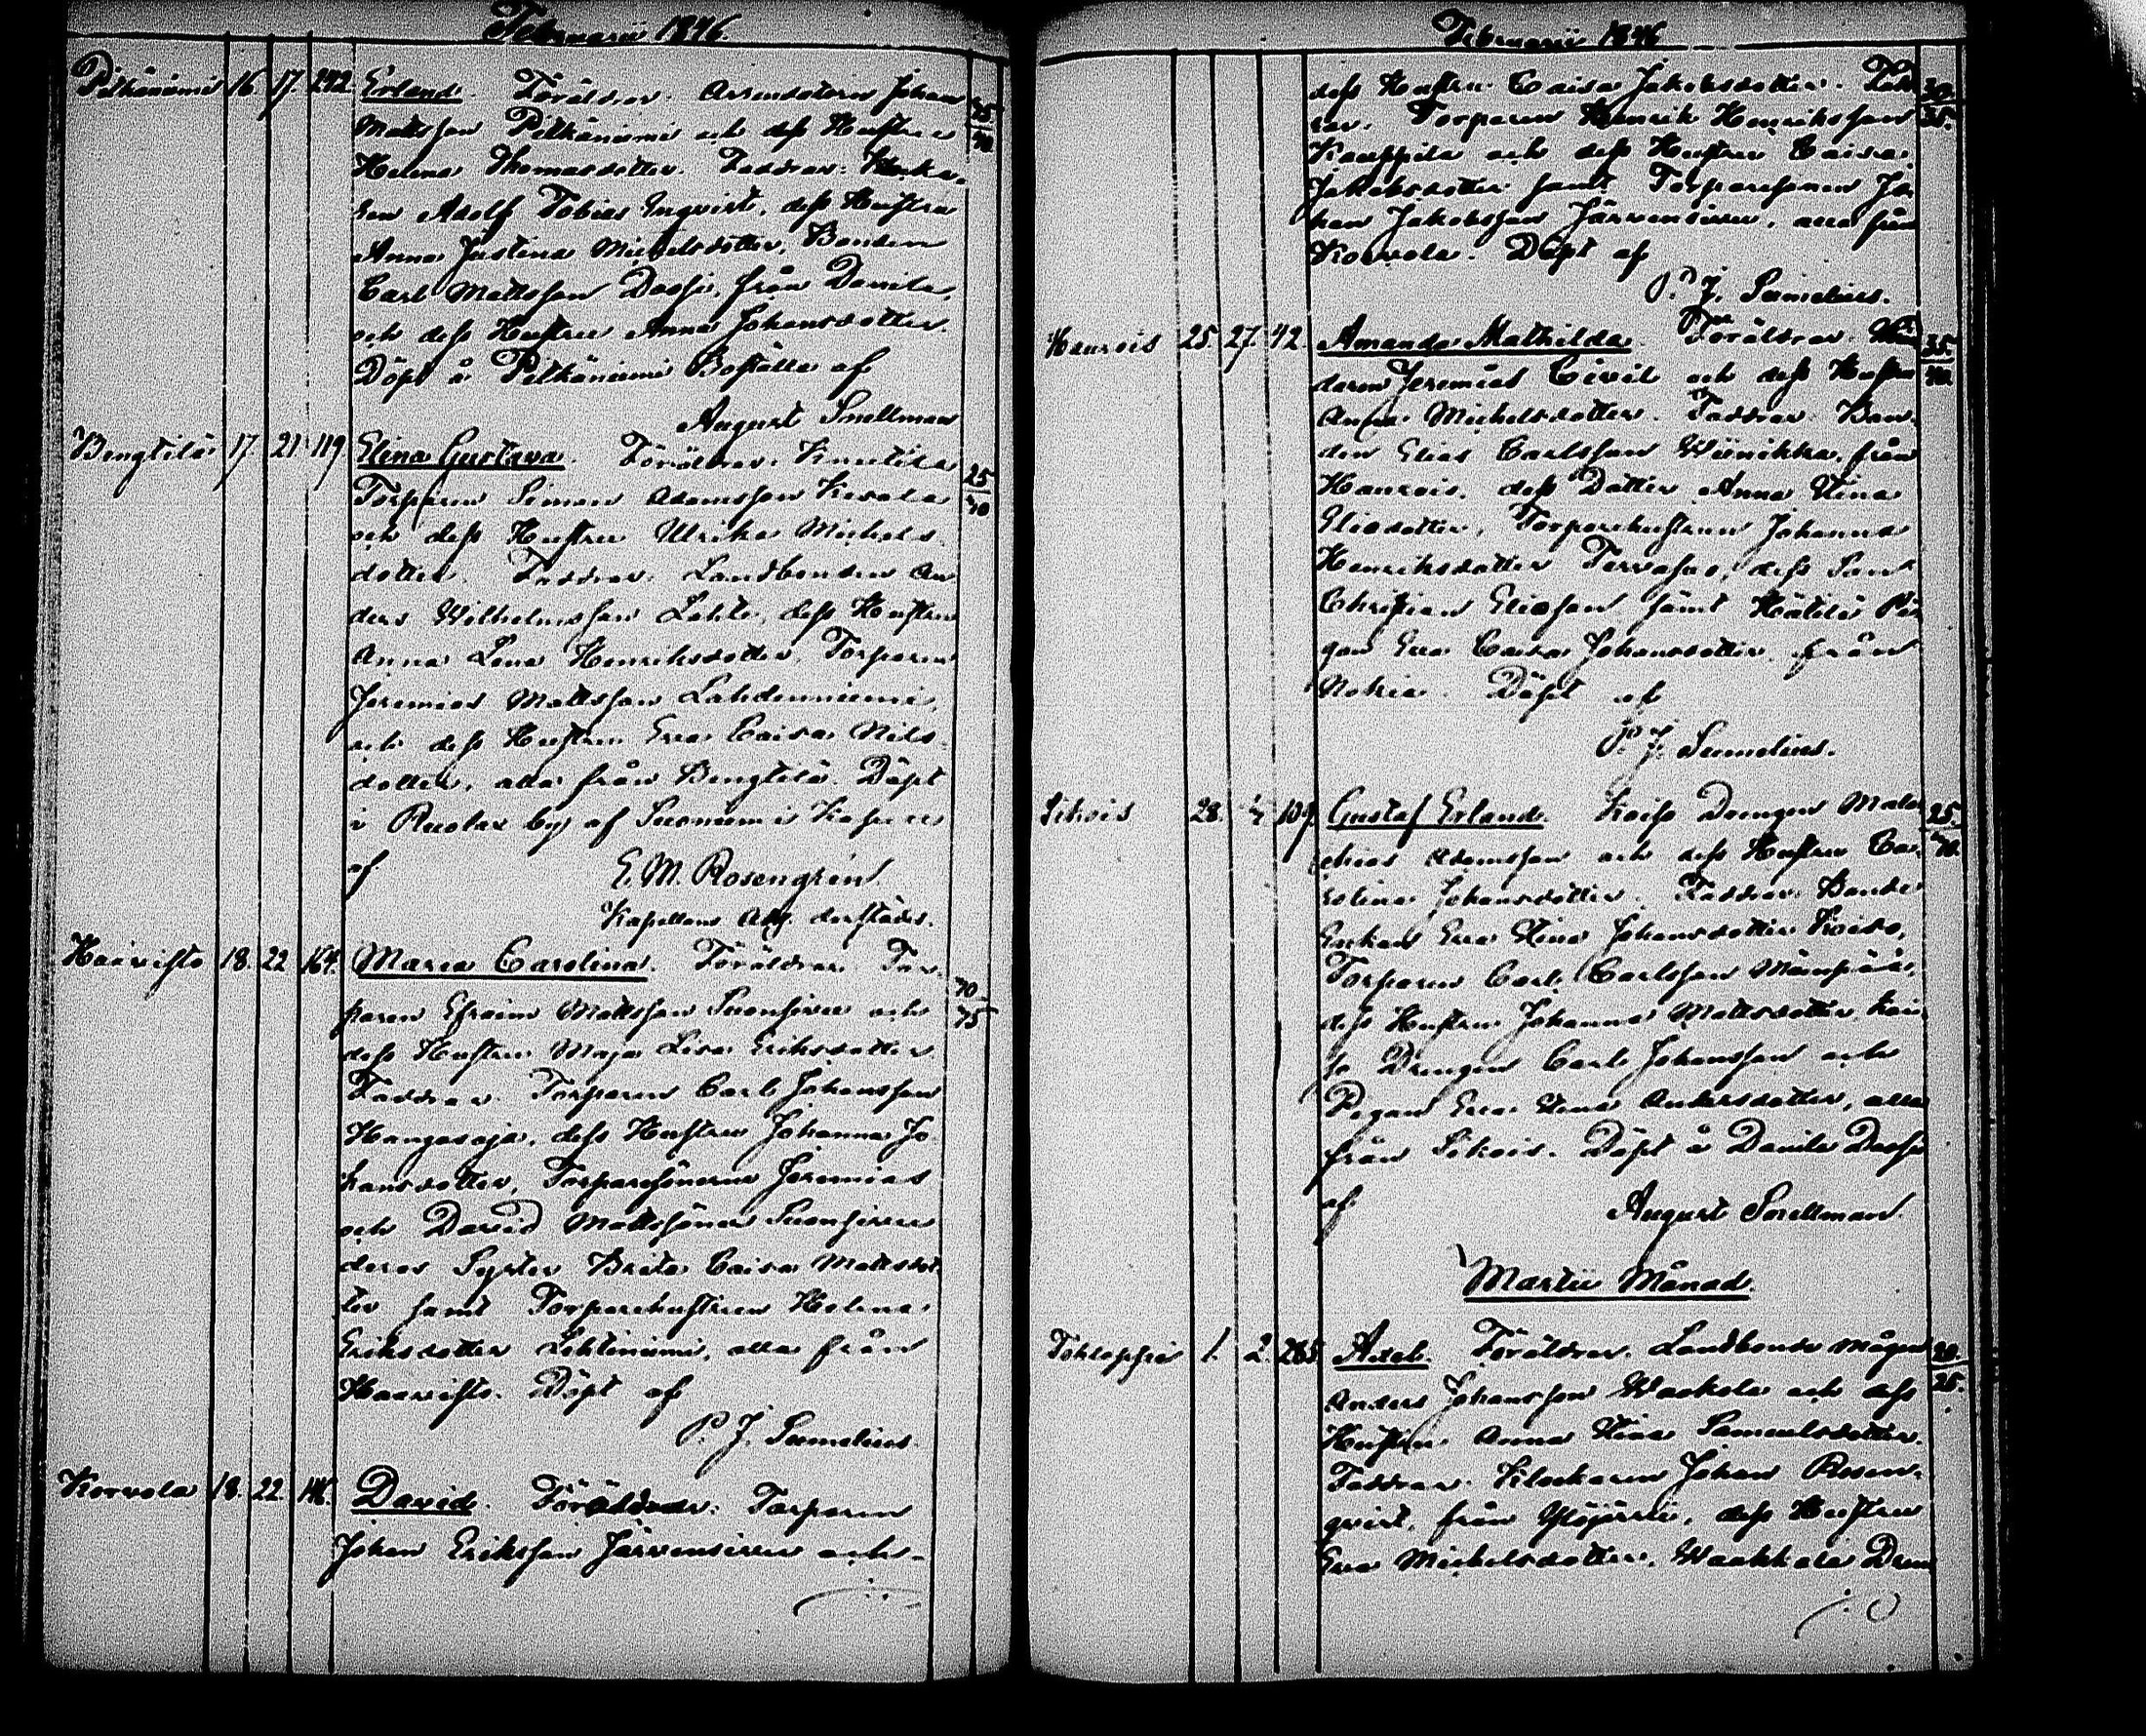 Februarii 1846.
Pitkäniemi 16. 17. 242. Erland. Föräldrar: Arrendatorn Johan
Mattsson Pitkäniemi och dess Hustru
Helena Thomasdotter. Faddrar:
Adolf Tobias Enqvist, dess Hustru
Anna Justina Michelsdotter, Bonden
Carl Mattsson Dassi, från Danila,
och dess Hustru Anna Johansdotter.
Döpt å Pitkäniemi Boställe af
August Snellman
Bengtilä 17. 21. 119. Elina Gustava. Föräldrar: Knutila 25/30
Torparen Simon Adamsson Kerola
och dess Hustru Ulrika Michels-
dotter. Faddrar: Landbonden An-
ders Wilhelmsson Lehti, dess Hustru
Anna Lena Henriksdotter, Torparen
Jeremias Mattsson Lahdenniemi,
och dess Hustru Eva Caisa Nils-
dotter, alla från Bengtilä. Döpt
i by af Suoniemi
af E. M. Rosengrén
Kapellans Adj. derstädes.
Haavisto 18. 22. 164. Maria Carolina. Föräldrar: Tor-
paren Efraim Mattsson Suonsivu och
dess Hustru Maja Lisa Eriksdotter.
Faddrar: Torparen Carl Johansson
Hangasoja, dess Hustru Johanna Jo-
hansdotter, Torparesönerne Jeremias
och David Mattssöner Suonsivu
deras Syster Brita Caisa Mattsdot-
ter samt Torparehustrun Helena
Eriksdotter Lehtiniemi, alla från
Haavisto. Döpt af
P. J. Sumelius.
Korvola 18. 22. 146. David. Föräldrar: Torparen
Johan Eriksson Järvensivu och
Februarii 1846
dess Hustru Caisa Jakobsdotter. Fadd- 30/35.
rar: Torparen Henrik Henriksson
Kauppila och dess Hustru Caisa
Jakobsdotter samt Torparesonen Jo-
han Jakobsson Järvensivu, alla från
Korvola. Döpt af
P. J. Sumelius.
Haurois 25. 27. 42. Amanda Mathilda. Föräldrar: 35/40.
Jeremias Civil och dess Hustru
Anna Michelsdotter. Faddrar: Bon-
den Elias Carlsson Wiinikka, från
Haurois, dess Dotter Anna Stina
Eliasdotter, Torparehustrun Johanna
Henriksdotter dess Son
Christian Eliasson samt Hätilä Pi-
gan Eva Caisa Johansdotter från
Nokia. Döpt af
P. J. Sumelius.
Sikois 28. 109. Gustaf Erland. Koiso Drengen Mala- 25/30.
chias Adamsson och dess Hustru Ca-
rolina Johansdotter. Faddrar: Bonde
Enkan Eva Stina Johansdotter Koiso,
Torparen Carl Carlsson Mäenpää,
dess Hustru Johanna Mattsdotter, Koi-
so Drengen Carl Johansson och
Pigan Eva Stina Andersdotter, alla
från Sikois. Döpt å Danila Dassi
af August Snellman.
Martii Månad.
1. 2. 265. Axel. Föräldrar: Landbonde mågen 20/25.
Anders Johansson Waakola och dess
Hustru Anna Stina Samuelsdotter.
Faddrar: Klockaren Johan Rosen-
qvist, från Ylöjärvi, dess Hustru
Eva Michelsdotter, Waakkola Dren-